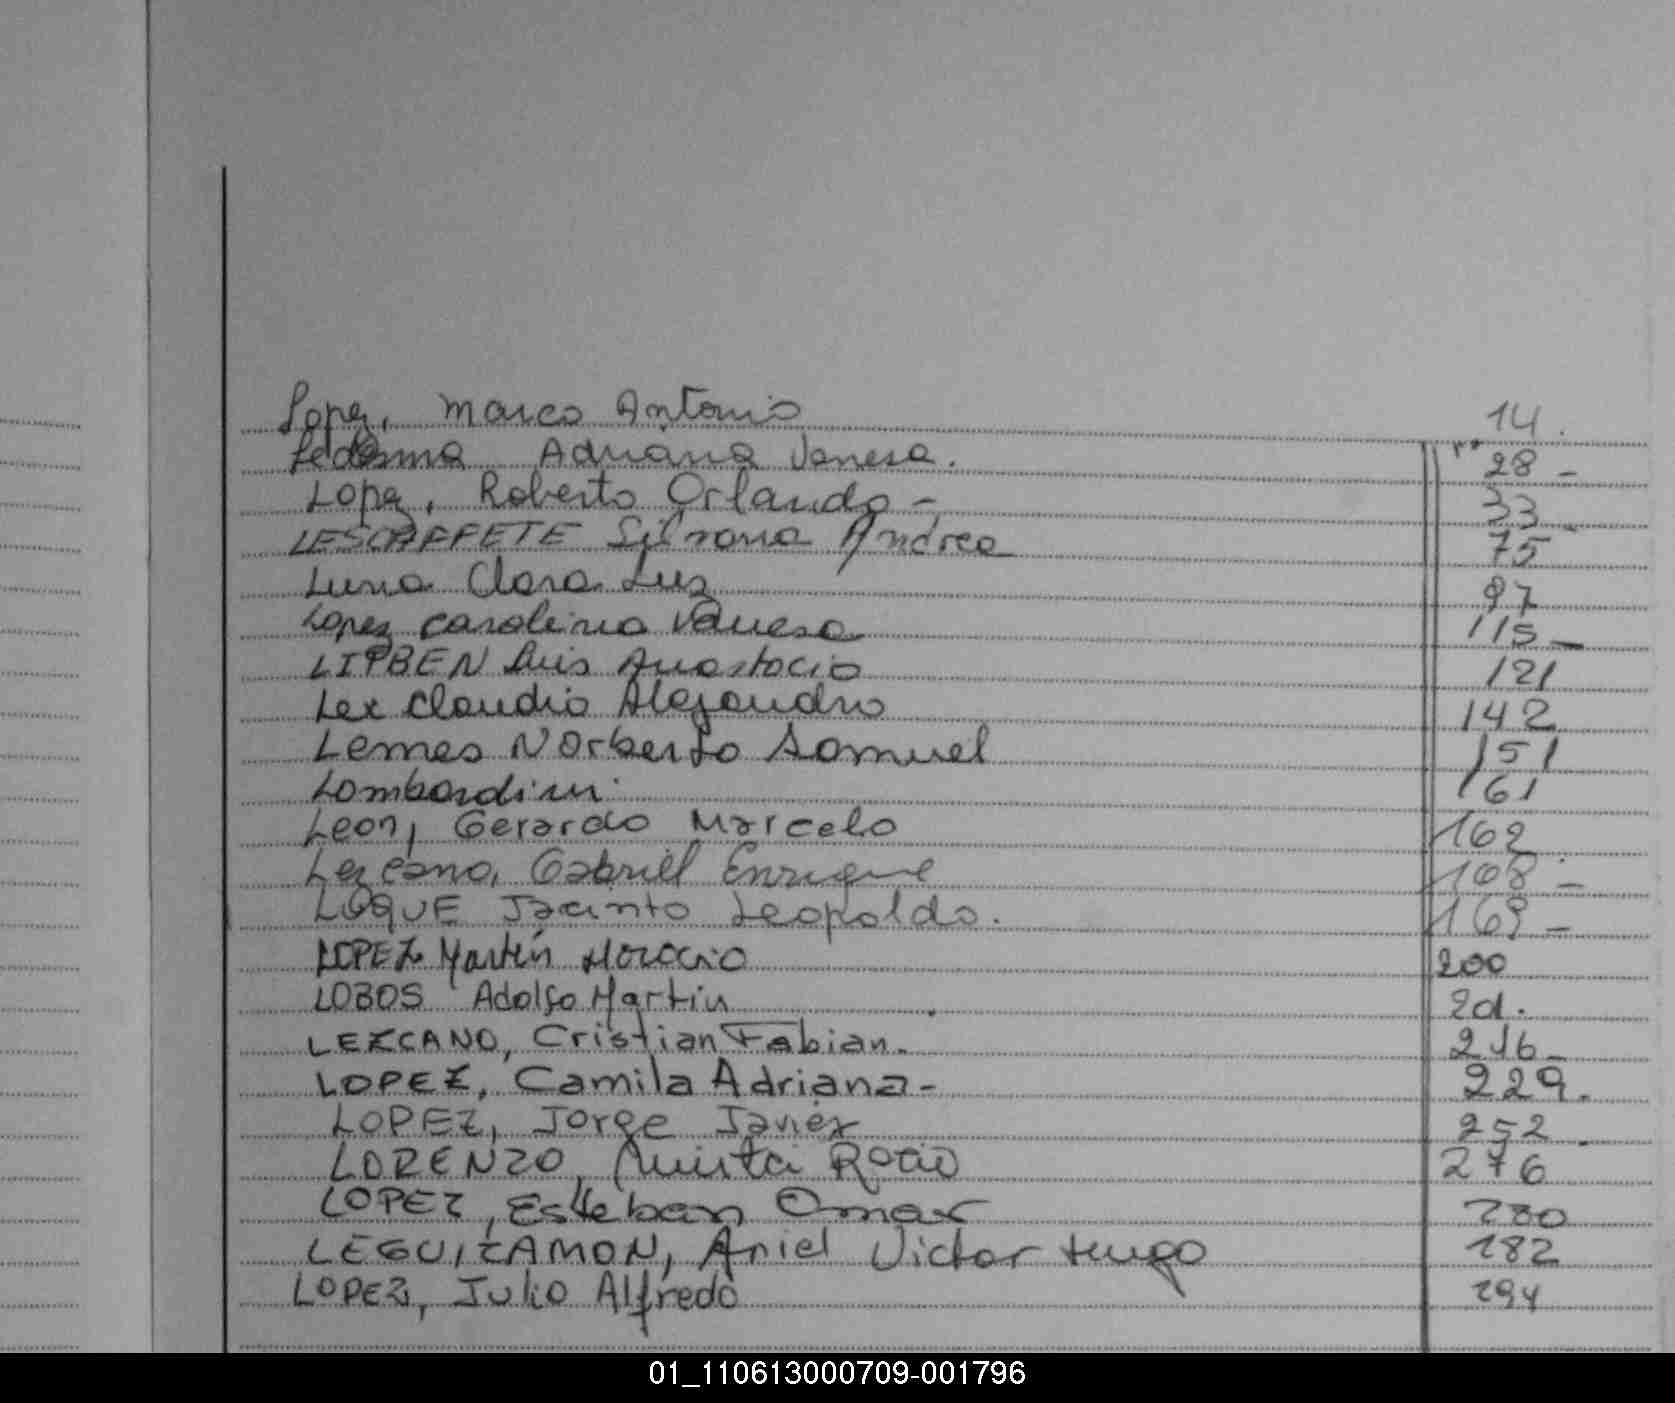 Lopez, Marco Antonio 14.
Ledesma Adriana Vanesa. 28 -
Lopez, Roberto Orlando - 33 -
LESCAFFETE Silvana Andrea 75
Luna Clara Luz 97
Lopez Carolina Vanesa 115 -
Luis Anastacio 121
Lex Claudio Alejandro 142
Lemes Norberto Samuel 151
Lombardini 161
Leon, Gerardo Marcelo 162
Lezcano, Gabriel Enrique 168 -
LUQUE Jacinto Leopoldo. 169 -
LOPEZ Martín Horacio 200
LOBOS Adolfo Martin 201.
LEZCANO, Cristian Fabian. 216 -
LOPEZ, Camila Adriana - 229.
LOPEZ, Jorge Javier 252.
LORENZO, Rocio 276
LOPEZ, Esteban Omar 280
LEGUIZAMON, Ariel Victor Hugo 282
LOPEZ, Julio Alfredo 294
01_110613000709-001796